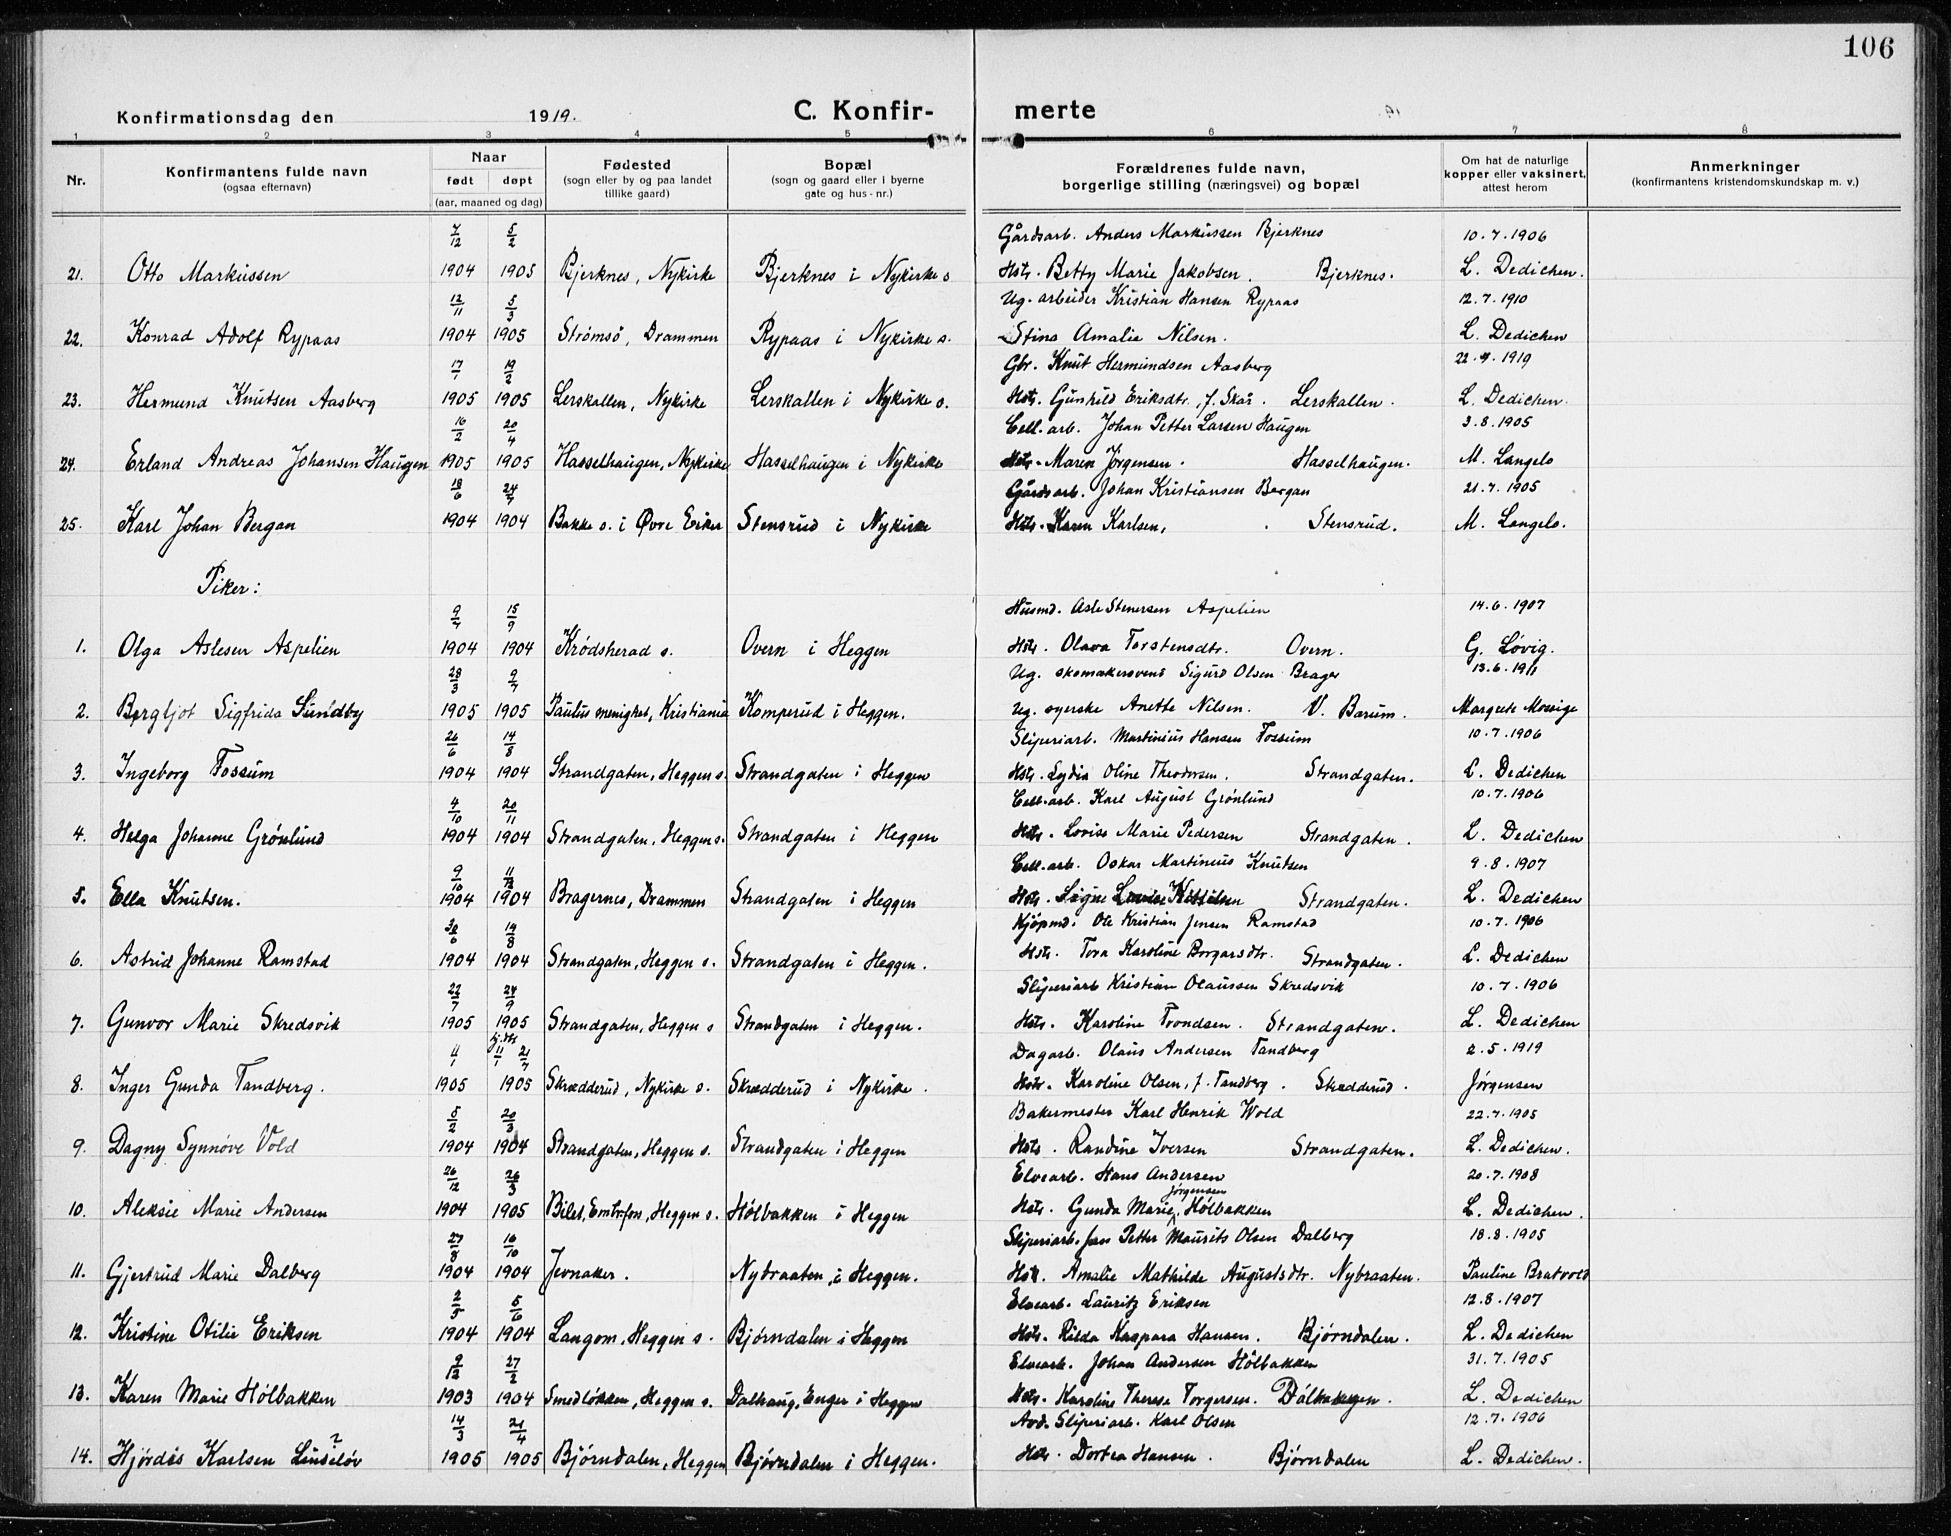 106
Konfirmationsdag den 1919. C. Konfir- merte
1 2 3 4 5 6 7 8
Nr. Konfirmantens fulde navn (ogsaa efternavn) Naar født døpt (aar, maaned og dag) Fødested (sogn eller by og paa landet tillike gaard) Bopæl (sogn og gaard eller i byerne gate og hus-nr.) Forældrenes fulde navn, borgerlige stilling (næringsvei) og bopæl Om hat de naturlige kopper eller vaksinert, attest herom Anmerkninger (konfirmantens kristendomskundskap m. v.)
7/12 5/2 Gårdsarb. Anders Markussen Bjerknes 10.7.1906
21. Otto Markussen 1904 1905 Bjerknes, Nykirke Bjerknes i Nykirke s. Hstr. Betty Marie Jakobsen. Bjerknes. L. Dedichen.
12/11 5/3 Ug. arbeider Kristian Hansen Rypaas 12.7.1910
22. Konrad Adolf Rypaas 1904 1905 Strømsø, Drammen Rypaas i Nykirke s. Stina Amalie Nilsen. L. Dedichen
17/1 19/2 Gbr. Knut Hermundsen Aasberg 22.4.1919
23. Hermund Knutsen Aasberg 1905 1905 Lerskallen, Nykirke Lerskallen i Nykirke s. Hstr. Gunhild Eriksdtr., f. Skår. Lerskallen. L. Dedichen.
16/2 20/4 Cell. arb. Johan Petter Larsen Haugen 3.8.1905
24. Erland Andreas Johansen Haugen 1905 1905 Hasselhaugen, Nykirke Hasselhaugen i Nykirke Hstr. Maren Jørgensen. Hasselhaugen. M. Langelo
18/6 24/7 Gårdsarb. Johan Kristiansen Bergan 21.7.1905
25. Karl Johan Bergan 1904 1904 Bakke s. i Øvre Eiker Stensrud i Nykirke Hstr. Karen Karlsen, Stensrud. M. Langelo.
Piker:
9/7 15/9 Husmd. Asle Stenersen Aspelien 14.6.1907
1. Olga Aslesen Aspelien 1904 1904 Krødsherad s. Overn i Heggen Hstr. Olava Torstensdtr. Overn. G. Løvig.
28/3 9/7 Ug. skomakersvend Sigurd Olsen Brager 13.6.1911
2. Bergljot Sigfrida Sundby 1905 1905 Paulus menighet, Kristiania Komperud i Heggen. Ug. syerske Anette Nilsen. V. Bærum. Margrete Mossige
26/6 14/8 Sliperiarb. Martinius Hansen Fossum 10.7.1906
3. Ingeborg Fossum 1904 1904 Strandgaten, Heggen s. Strandgaten i Heggen Hstr. Lydia Oline Theodorsen. Strandgaten. L. Dedichen
4/10 20/11 Cell. arb. Karl August Grønlund 10.7.1906
4. Helga Johanne Grønlund 1904 1904 Strandgaten, Heggen s. Strandgaten i Heggen Hstr. Lovise Marie Pedersen Strandgaten. L. Dedichen
9/10 11/12 Cell. arb. Oskar Martinius Knutsen 9.8.1907
5. Ella Knutsen. 1904 1904 Bragernes, Drammen Strandgaten i Heggen Hstr. Signe Lovise Kittilsen Strandgaten. L. Dedichen
30/6 14/8 Kjøpmd. Ole Kristian Jensen Ramstad 10.7.1906
6. Astrid Johanne Ramstad 1904 1904 Strandgaten, Heggen s. Strandgaten i Heggen. Hstr. Tora Karoline Borgarsdtr. Strandgaten. L. Dedichen
22/7 24/9 Sliperiarb Kristian Olaussen Skredsvik 10.7.1906
7. Gunvor Marie Skredsvik 1905 1905 Strandgaten, Heggen s Strandgaten i Heggen. Hstr. Karoline Trondsen. Strandgaten. L. Dedichen
11/1 11/1 21/7 Dagarb. Olaus Andersen Tandberg 2.5.1919
8. Inger Gunda Tandberg. 1905 1905 Skrædderud, Nykirke s. Skrædderud i Nykirke. Hstr. Karoline Olsen, f. Tandberg. Skrædderud. Jørgensen
5/2 20/3 Bakermester Karl Henrik Wold 22.7.1905
9. Dagny Synnøve Vold 1904 1904 Strandgaten, Heggen s. Strandgaten i Heggen Hstr. Randine Iversen Strandgaten. L. Dedichen.
26/12 26/3 Elvearb. Hans Andersen 20.7.1908
10. Aleksie Marie Andersen 1904 1905 Bilet, Embrefoss, Heggen s. Hølbakken i Heggen Hstr. Gunda Marie Jørgensen Hølbakken L. Dedichen.
27/8 16/10 Sliperiarb. Jan Petter Maurits Olsen Dalberg 18.8.1905
11. Gjertrud Marie Dalberg 1904 1904 Jevnaker. Nybraaten i Heggen. Hst. Amalie Mathilde Augustsdtr. Nybraaten. Pauline Bratvold
2/5 5/6 Elvearb. Lauritz Eriksen 12.8.1907
12. Kristine Otilie Eriksen 1904 1904 Langom, Heggen s. Bjørndalen i Heggen Hstr. Rilda Kaspara Hansen. Bjørndalen. L. Dedichen
9/12 27/2 Elvearb. Johan Andersen Hølbakken 31.7.1905
13. Karen Marie Hølbakken 1903 1904 Smedløkken, Heggen s. Dalhaug, Enger i Heggen Hstr. Karoline Therese Torgersen. L. Dedichen
14/3 21/4 Avd. Sliperiarb. Karl Olsen 12.7.1906
14. Hjørdis Karlsen Lindeløv ? 1905 1905 Bjørndalen, Heggen Bjørndalen i Heggen. Hstr. Dortea Hansen. Bjørndalen L. Dedichen.